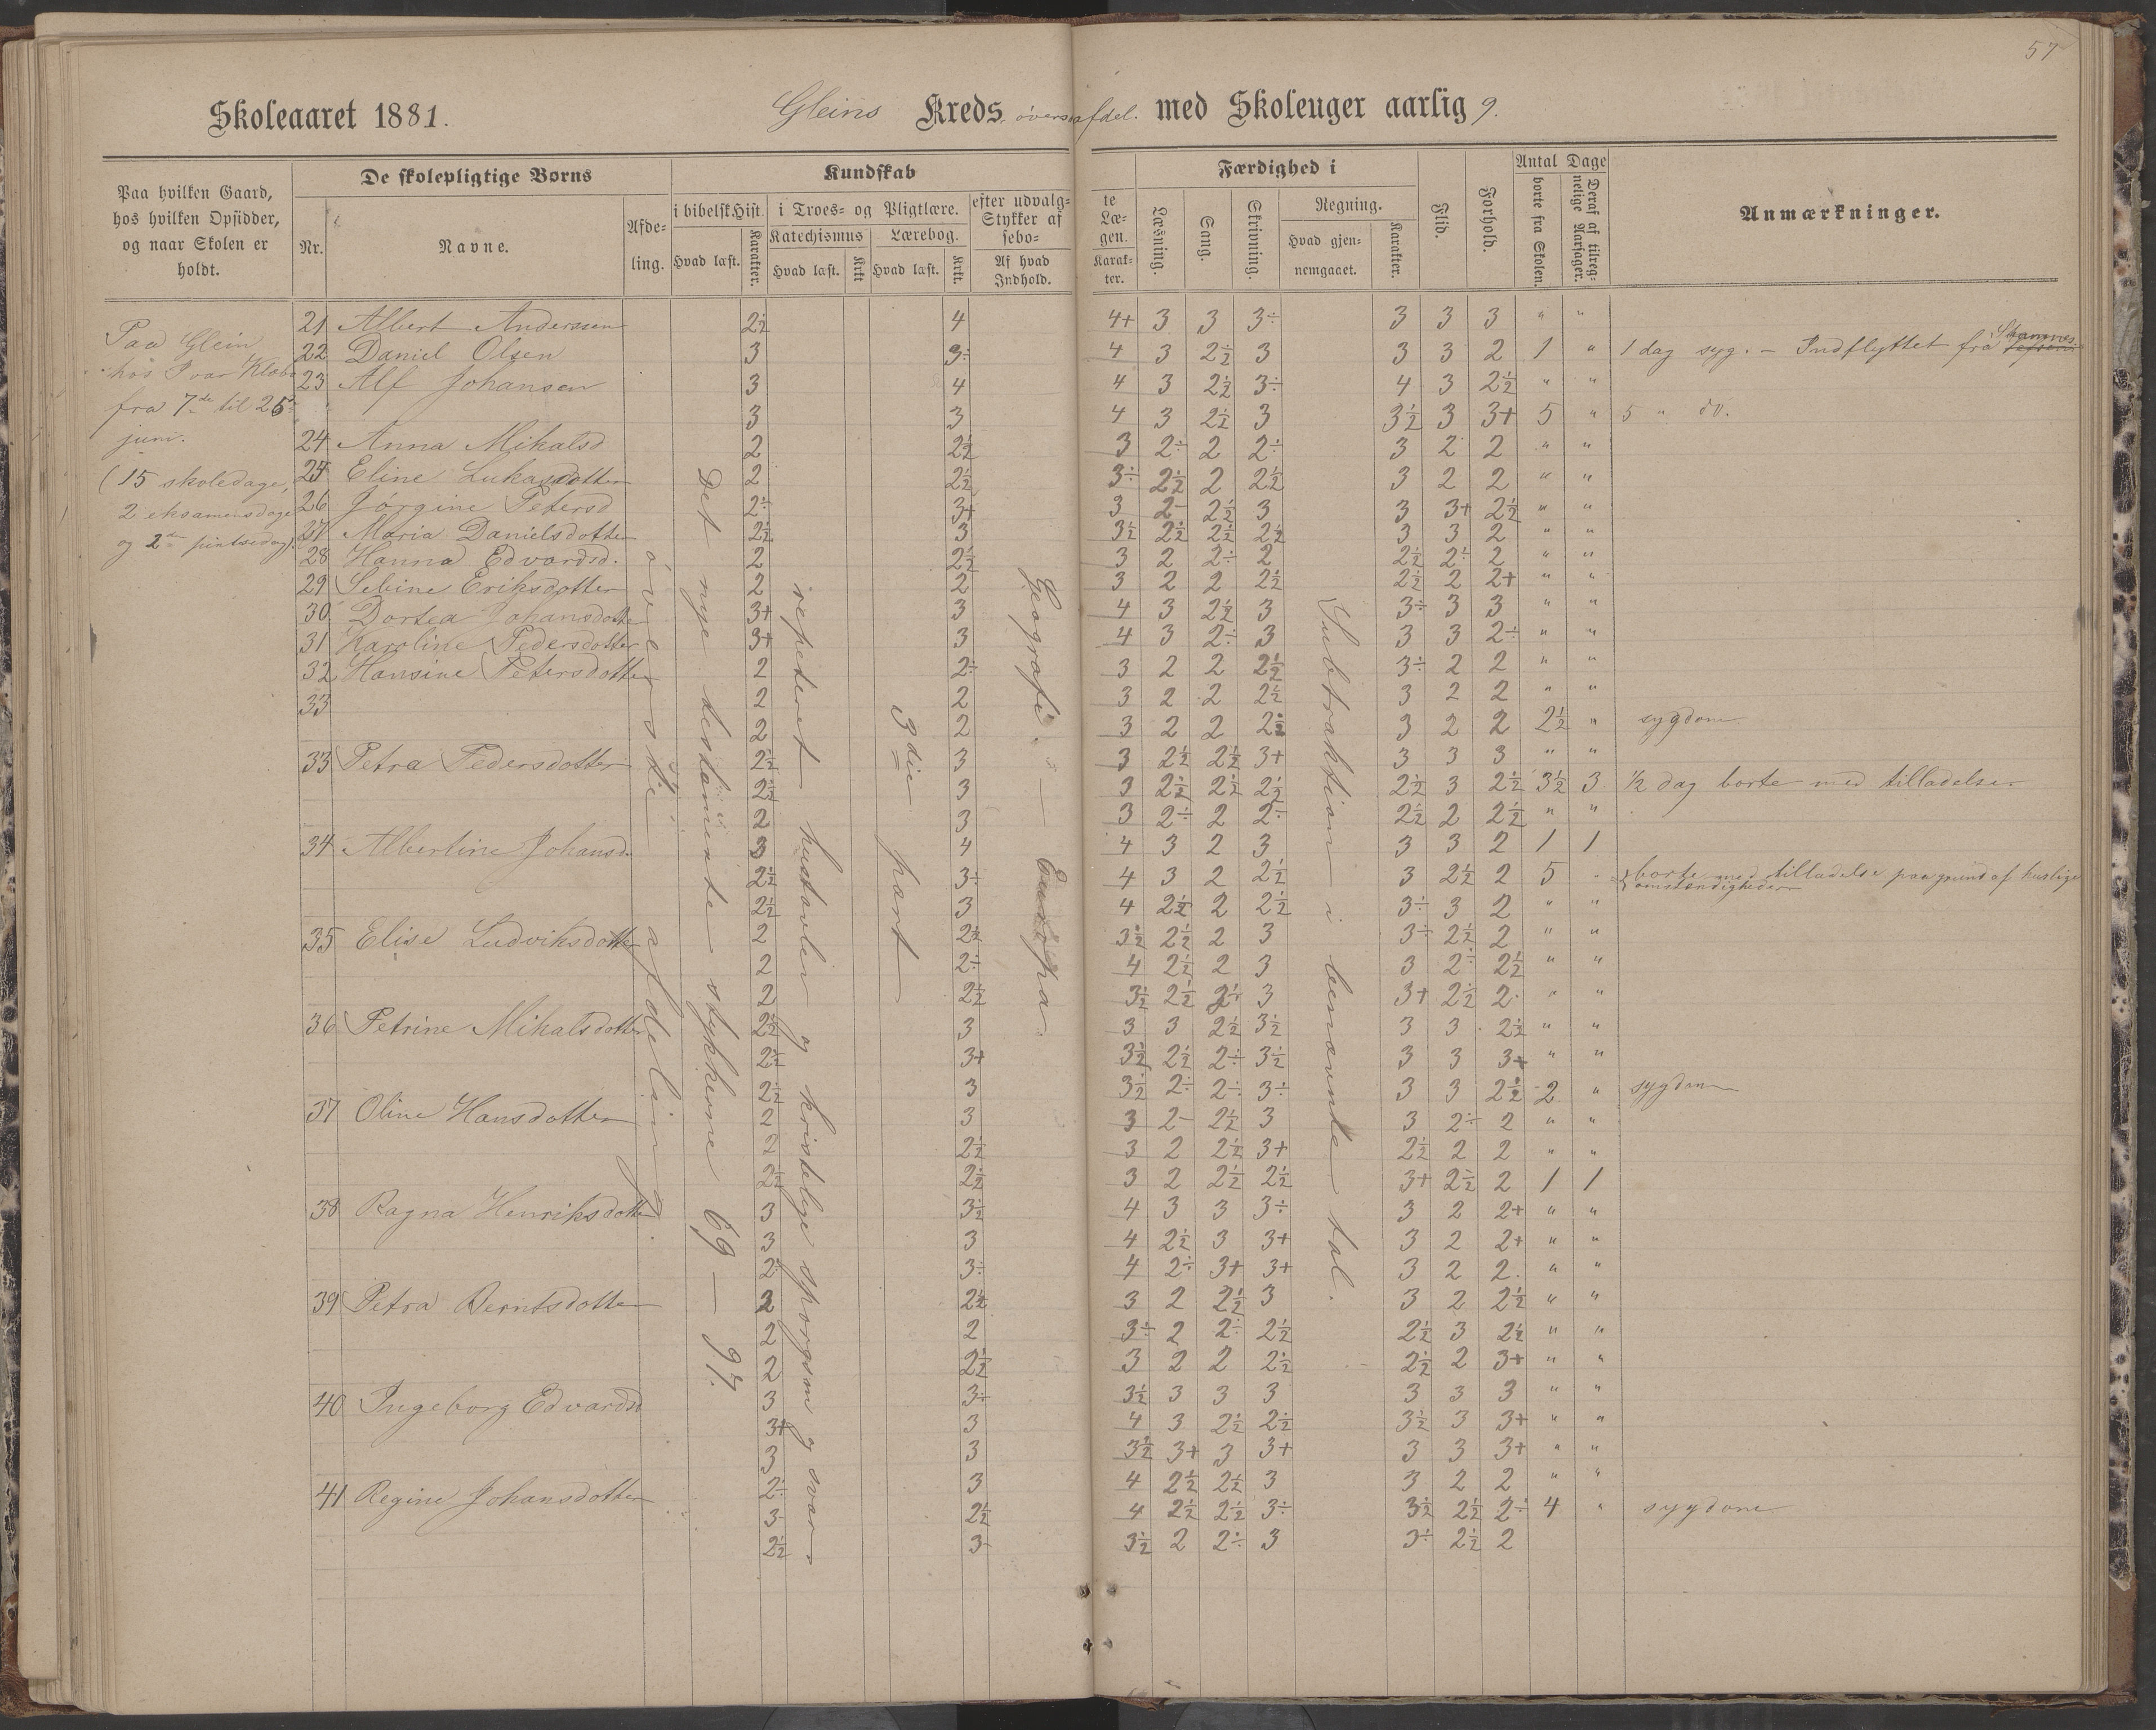 57
Skoleaaret 1881.
Gleins Kreds øverste afdel. med Skoleuger aarlig 9.
Paa hvilken Gaard,
hos hvilken Opsidder,
og naar Skolen er
holdt.
De skolepligtige Børns
Nr.
Navne.
Afde-
ling.
Kundskab
i bibelsk Hist.
Hvad læst.
Karakter.
i Troes- og Pligtlære.
Katechismus
Hvad læst.
Krkt
Lærebog.
Hvad læst.
Krkt.
efter udvalg-
Stykker af
sebo-
Af hvad
Indhold.
te
Læ-
gen.
Karak-
ter.
Færdighed i
Læsning.
Sang.
Skrivning.
Regning.
Hvad gjen-
nemgaaet.
Karakter.
Flid.
Forhold.
Antal Dage
borte fra Skolen.
Deraf af tilreg-
nelige Aarsager.
Anmærkninger.
Paa Glein
hos Ivar Klæbo
fra 7de til 25
juni.
(15 skoledage,
2 eksamensdage
og 2den pintsedag).
øverste afdeling.
Det nye testamente stykkerne 69 — 97.
repeteret hustavlen og kristelige spørgsm og svar
3die part
Geografi. — Europa.
Subtraktion i benævnte tal.
21 Albert Anderssen 2½ 4 4+ 3 3 3÷ 3 3 3 " "
22 Daniel Olsen 3 3÷ 4 3 2½ 3 3 3 2 1 " 1 dag syg. — Indflyttet fra Stamnes
23 Alf Johansen 3 4 4 3 2½ 3÷ 4 3 2½ " "
3 3 4 3 2½ 3 3½ 3 3+ 5 " 5 " do.
24 Anna Mikalsd 2 2½ 3 2÷ 2 2÷ 3 2 2 " "
25 Eline Lukasdotter 2 2½ 3÷ 2½ 2 2½ 3 2 2 " "
26 Jørgine Petersd 2÷ 3+ 3 2- 2½ 3 3 3+ 2½ " "
27 Maria Danielsdotter 2½ 3 3½ 2½ 2½ 2½ 3 3 2 " "
28 Hanna Edvardsd. 2 2½ 3 2 2÷ 2 2½ 2÷ 2 " "
29 Sebine Eriksdotter 2 2 3 2 2 2½ 2½ 2 2+ " "
30 Dortea Johansdotter 3+ 3 4 3 2½ 3 3÷ 3 3 " "
31 Karoline Pedersdotter 3+ 3 4 3 2÷ 3 3 3 2÷ " "
32 Hansine Petersdotter 2 2÷ 3 2 2 2½ 3÷ 2 2 " "
33 2 2 3 2 2 2½ 3 2 2 " "
2 2 3 2 2 2½ 3 2 2 2½ " sygdom
33 Petra Pedersdotter 2½ 3 3 2½ 2½ 3+ 3 3 3 " "
2½ 3 3 2½ 2½ 2½ 2½ 3 2½ 3½ 3 ½ dag borte med tilladelse.
2 3 3 2÷ 2 2÷ 2½ 2 2½ " "
34 Albertine Johansd. 3 4 4 3 2 3 3 3 2 1 1
2½ 3÷ 4 3 2 2½ 3 2½ 2 5 " borte med tilladelse paa grund af huslige
omstændigheder
2½ 3 4 2½ 2 2½ 3÷ 3 2 " "
35 Elise Ludviksdotter 2 2½ 3½ 2½ 2 3 3÷ 2½ 2 " "
2 2÷ 4 2½ 2 3 3 2÷ 2½ " "
2 2½ 3½ 2½ 2+ 3 3+ 2½ 2 " "
36 Petrine Mikalsdotter 2½ 3 3 3 2½ 3½ 3 3 2½ " "
2½ 3+ 3½ 2½ 2÷ 3½ 3 3 3+ " "
2½ 3 3½ 2÷ 2÷ 3÷ 3 3 2½ 2 " sygdom
37 Oline Hansdotter 2 3 3 2- 2½ 3 3 2÷ 2 " "
2 2½ 3 2 2½ 3+ 2½ 2 2 " "
2½ 2½ 3 2 2½ 2½ 3+ 2½ 2 1 1
38 Ragna Henriksdotter 3 3½ 4 3 3 3÷ 3 2 2+ " "
3 3 4 2½ 3 3+ 3 2 2+ " "
2÷ 3÷ 4 2÷ 3+ 3+ 3 2 2 " "
39 Petra Berntsdotter 2 2½ 3 2 2½ 3 3 2 2½ " "
2 2 3÷ 2 2÷ 2½ 2½ 3 2½ " "
2 2½ 3 2 2 2½ 2½ 2 3+ " "
40 Ingeborg Edvardsd 3 3÷ 3½ 3 3 3 3 3 3 " "
3+ 3 4 3 2½ 2½ 3½ 3 3+ " "
3 3 3½ 3+ 3 3+ 3 3 3+ " "
41 Regine Johansdotter 2÷ 3 4 2½ 2½ 3 3 2 2 " "
3 2½ 4 2½ 2½ 3÷ 3½ 2½ 2÷ 4 " sygdom
2½ 3- 3½ 2 2÷ 3 3÷ 2½ 2